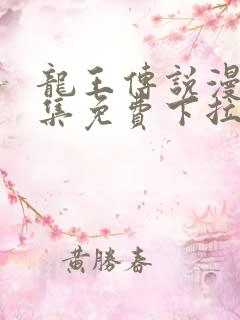 龍王傳說漫
集免費下拉
黃勝春